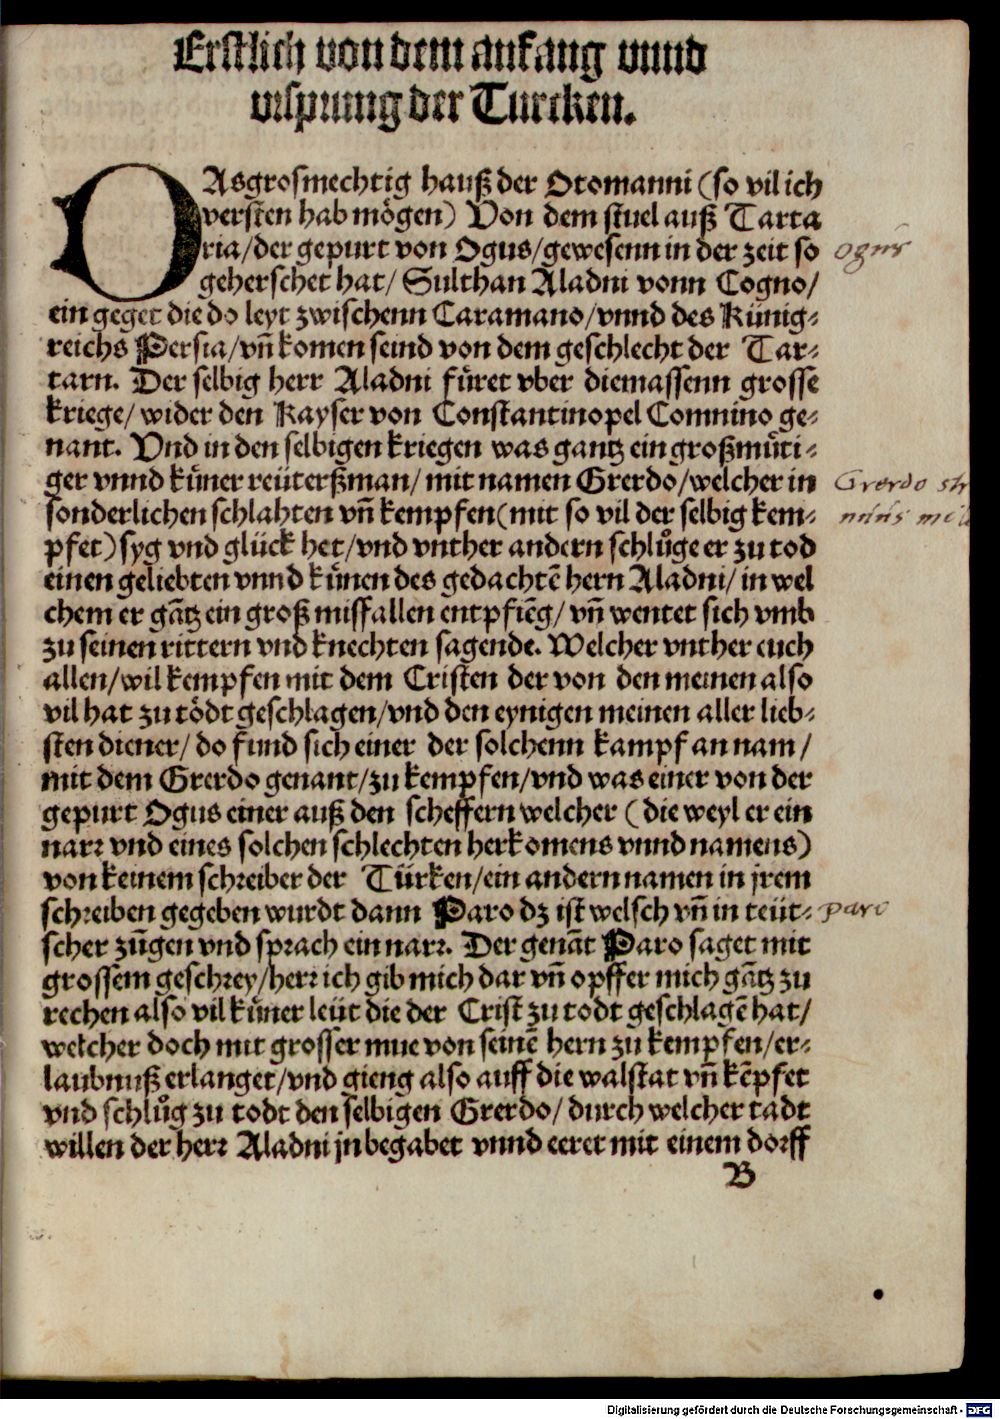 Erstlich von dem anfang vnnd
vrsprung der Turcken.
DAsgrosmechtig hauß der Otomanni (so vil ich
versten hab mögen) Von dem stuel auß Tarta
ria/der gepurt von Ogus/gewesenn in der zeit so
geherschet hat/ Sulthan Aladni vonn Cogno/
ein geget die do leyt zwischenn Caramano/vnnd des Künig⸗
reichs Persia/vñ komen seind von dem geschlecht der Tar⸗
tarn. Der selbig herr Aladni füret vber diemassenn grosse
kriege/ wider den Kayser von Constantinopel Comnino ge⸗
nant. Vnd in den selbigen kriegen was gantz ein großmüti⸗
ger vnnd küner reüterßman/ mit namen Grerdo/welcher in
sonderlichen schlahten vñ kempfen(mit so vil der selbig kem⸗
pfet)syg vnd glück het/vnd vnther andern schlůge er zu tod
einen geliebten vnnd künen des gedachtē hern Aladni/ in wel
chem er gātz ein groß missfallen entpfiēg/ vñ wentet sich vmb
zu seinen rittern vnd knechten sagende. Welcher vnther euch
allen/wil kempfen mit dem Cristen der von den meinen also
vil hat zu tödt geschlagen/vnd den eynigen meinen aller lieb⸗
sten diener/ do fund sich einer der solchenn kampf an nam/
mit dem Grerdo genant/zu kempfen/vnd was einer von der
gepurt Ogus einer auß den scheffern welcher (die weyl er ein
narr vnd eines solchen schlechten herkomens vnnd namens)
von keinem schreiber der Türken/ein andern namen in jrem
schreiben gegeben wurdt dann Paro dz ist welsch vñ in teüt⸗
scher zūgen vnd sprach ein narr. Der genāt Paro saget mit
grossem geschrey/herr ich gib mich dar vñ opffer mich gātz zu
rechen also vil küner leüt die der Crist zu todt geschlagē hat/
welcher doch mit grosser mue von seinē hern zu kempfen/er⸗
laubnuß erlanget/vnd gieng also auff die walstat vñ kēpfet
vnd schlůg zu todt den selbigen Grerdo/durch welcher tadt
willen der herr Aladni jn begabet vnnd eeret mit einem dorff
B
ogus
Grerdo
paro
Digitalisierung gefördert durch die Deutsche Forschungsgemeinschaft - DFG